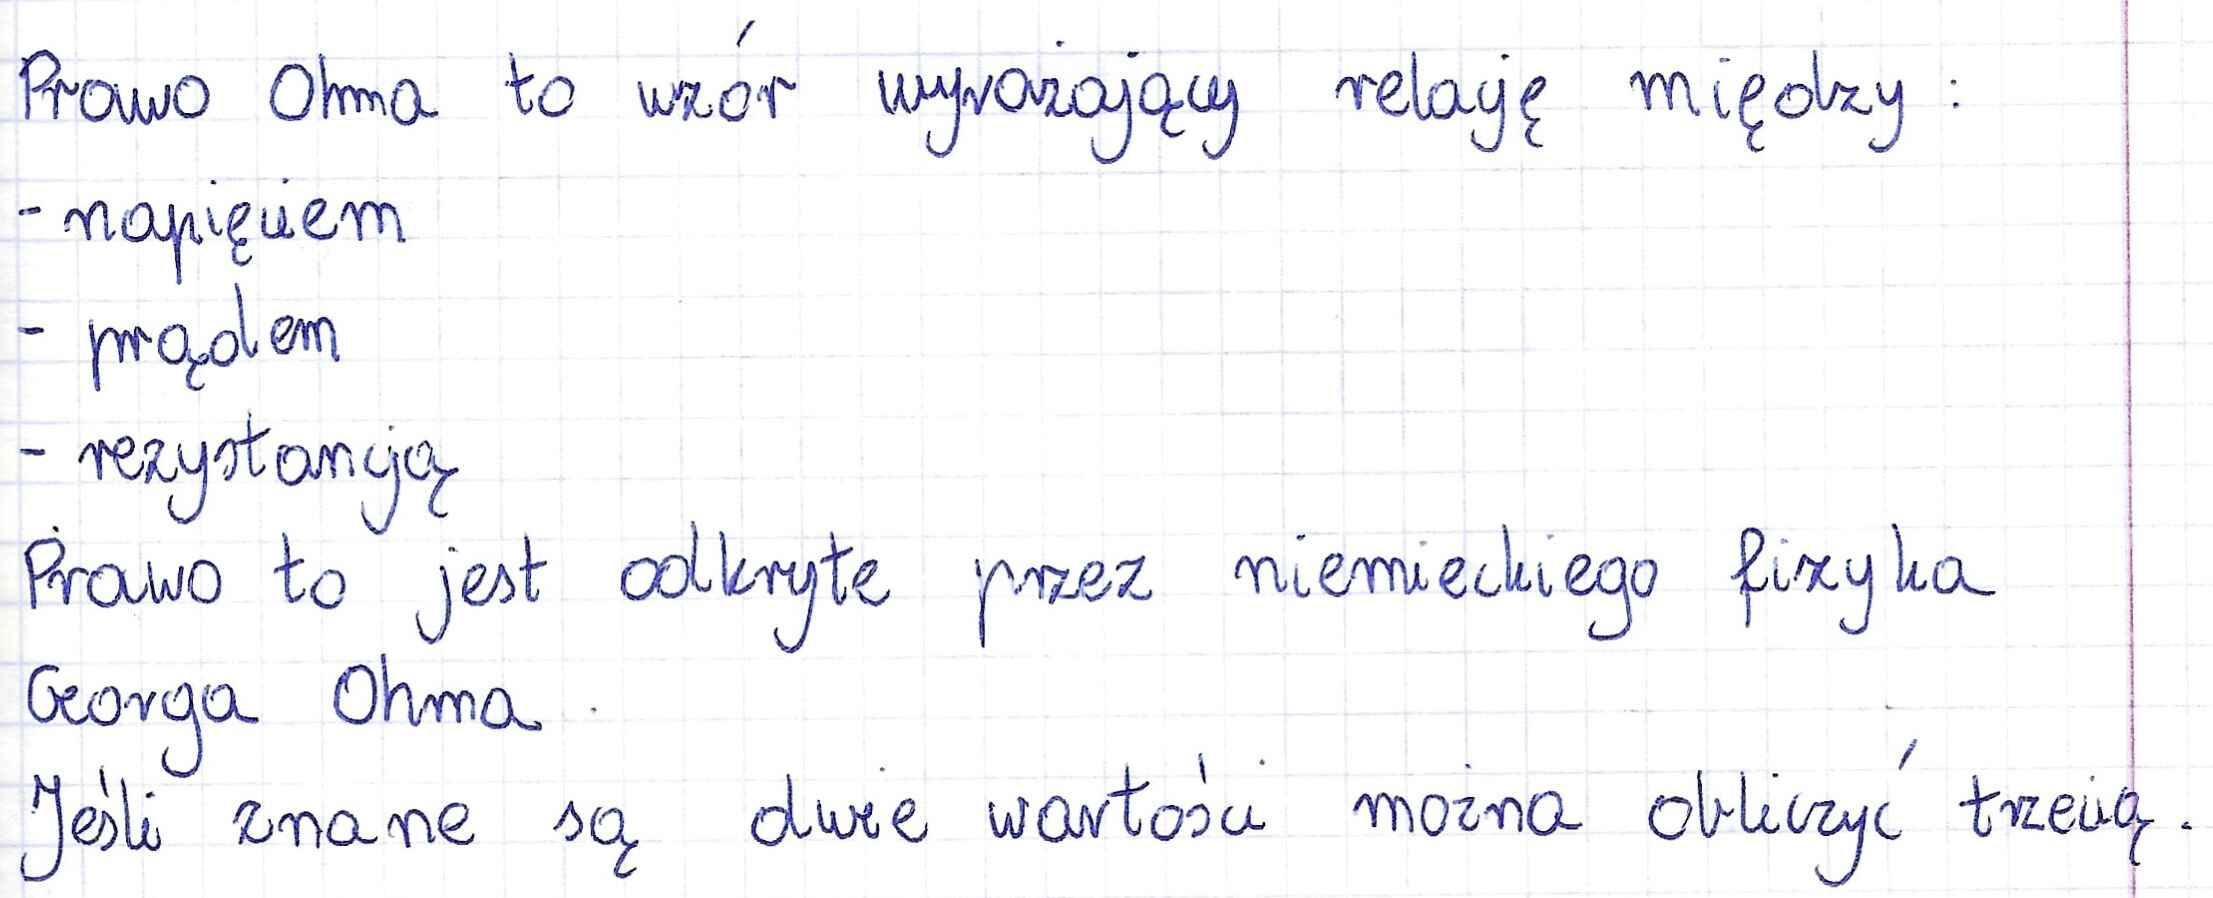 Prawo Ohma to wzór wyrażający relację między:
- napięciem
- prądem
- rezystancją
Prawo to jest odkryte przez niemieckiego fizyka
Georga Ohma.
Jeśli znane są dwie wartości można obliczyć trzecią.